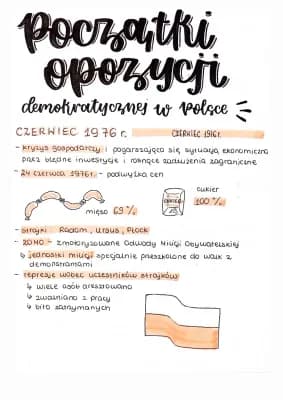 początki
opozycji
demokratycznej w Polsce
CZERWIEC 1976 r.
CZERWIEC 1976r.
- kryzys gospodarczy i pogarszająca się sytuacja ekonomiczna
przez błędne inwestycje i rosnące zadłużenia zagraniczne
- 24 czerwca 1976r. - podwyżka cen
mięso 69 %
cukier
100 %
- strajki Radom, Ursus, Płock
- ZOMO - Zmotoryzowane Odwody Milicji Obywatelskiej
↳ jednostki milicji specjalnie przeszkolone do walk z
demonstrantami
- represje wobec uczestników strajków
↳ wiele osób aresztowano
↳ zwalniano z pracy
↳ bito zatrzymanych